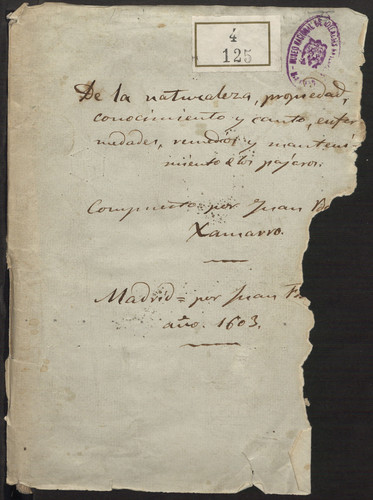 4
125
MUSEO NACIONAL DE
De la naturaleza, propiedad,
conocimiento y canto, enfer
medades, remedios y manteni-
miento de los pajaros.
Compuesto por Juan B
Xamarro.
Madrid = por Juan
año. 1603.